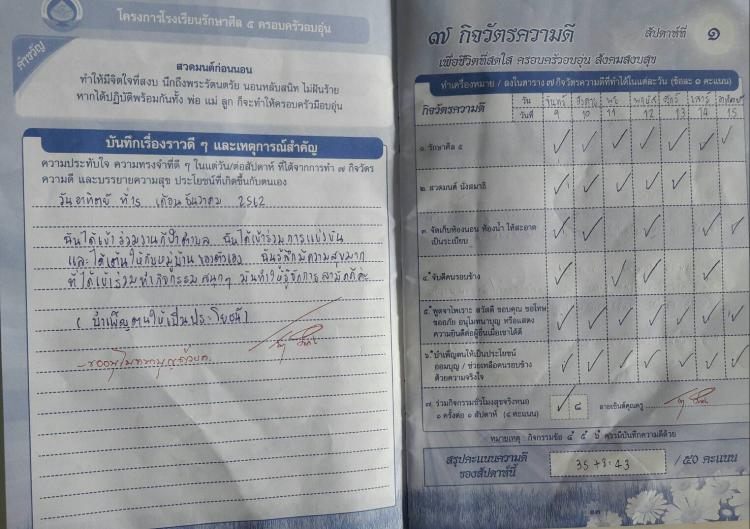 โครงการโรงเรียนรักษาศีล ๕ ครอบครัวอบอุ่น
คำขวัญ
สวดมนต์ก่อนนอน
ทำให้มีจิตใจที่สงบ นึกถึงพระรัตนตรัย นอนหลับสนิท ไม่ฝันร้าย
หากได้ปฏิบัติพร้อมกันทั้ง พ่อ แม่ ลูก ก็จะทำให้ครอบครัวมีอบอุ่น
บันทึกเรื่องราวดี ๆ และเหตุการณ์สำคัญ
ความประทับใจ ความทรงจำที่ดี ๆ ในแต่วัน/ต่อสัปดาห์ ที่ได้จากการทำ ๗ กิจวัตร
ความดี และบรรยายความสุข ประโยชน์ที่เกิดขึ้นกับตนเอง
วันอาทิตย์ ที่ 15 เดือน ธันวาคม 2562
ฉันได้เข้าร่วมงานกีฬาตำบล ฉันได้เข้าร่วมการแข่งขัน
และได้เต้นให้กับหมู่บ้านของตัวเอง ฉันรู้สึกมีความสุขมาก
ที่ได้เข้าร่วมทำกิจกรรมสนุกๆ มันทำให้รู้จักการสามัคคีค่ะ
( บำเพ็ญตนให้เป็นประโยชน์ )
-ขออนุโมทนาบุญด้วยค่ะ
๗ กิจวัตรความดี
สัปดาห์ที่ ๑
เพื่อชีวิตที่สดใส ครอบครัวอบอุ่น สังคมสงบสุข
ทำเครื่องหมาย / ลงในตาราง ๗ กิจวัตรความดีที่ทำได้ในแต่ละวัน (ข้อละ ๑ คะแนน)
กิจวัตรความดี วัน จันทร์ อังคาร พุธ พฤหัส ศุกร์ เสาร์ อาทิตย์
วันที่ 9 10 11 12 13 14 15
๑. รักษาศีล ๕
๒. สวดมนต์ นั่งสมาธิ
๓. จัดเก็บห้องนอน ห้องน้ำ ให้สะอาด
เป็นระเบียบ
๔. จับดีคนรอบข้าง
๕. พูดจาไพเราะ สวัสดี ขอบคุณ ขอโทษ
ขออภัย อนุโมทนาบุญ หรือแสดง
ความยินดีต่อผู้อื่นเมื่อเขาได้ดี
๖. บำเพ็ญตนให้เป็นประโยชน์
ออมบุญ / ช่วยเหลือคนรอบข้าง
ด้วยความจริงใจ
๗. ร่วมกิจกรรมชั่วโมงสุขจริงหนอ
๑ ครั้งต่อ ๑ สัปดาห์ (๘ คะแนน)
๘
ลายเซ็นต์คุณครู
หมายเหตุ : กิจกรรมข้อ ๔ ๕ ๖ ควรมีบันทึกความดีด้วย
สรุปคะแนนความดี
ของสัปดาห์นี้
35 +8 = 43
/ ๕๐ คะแนน